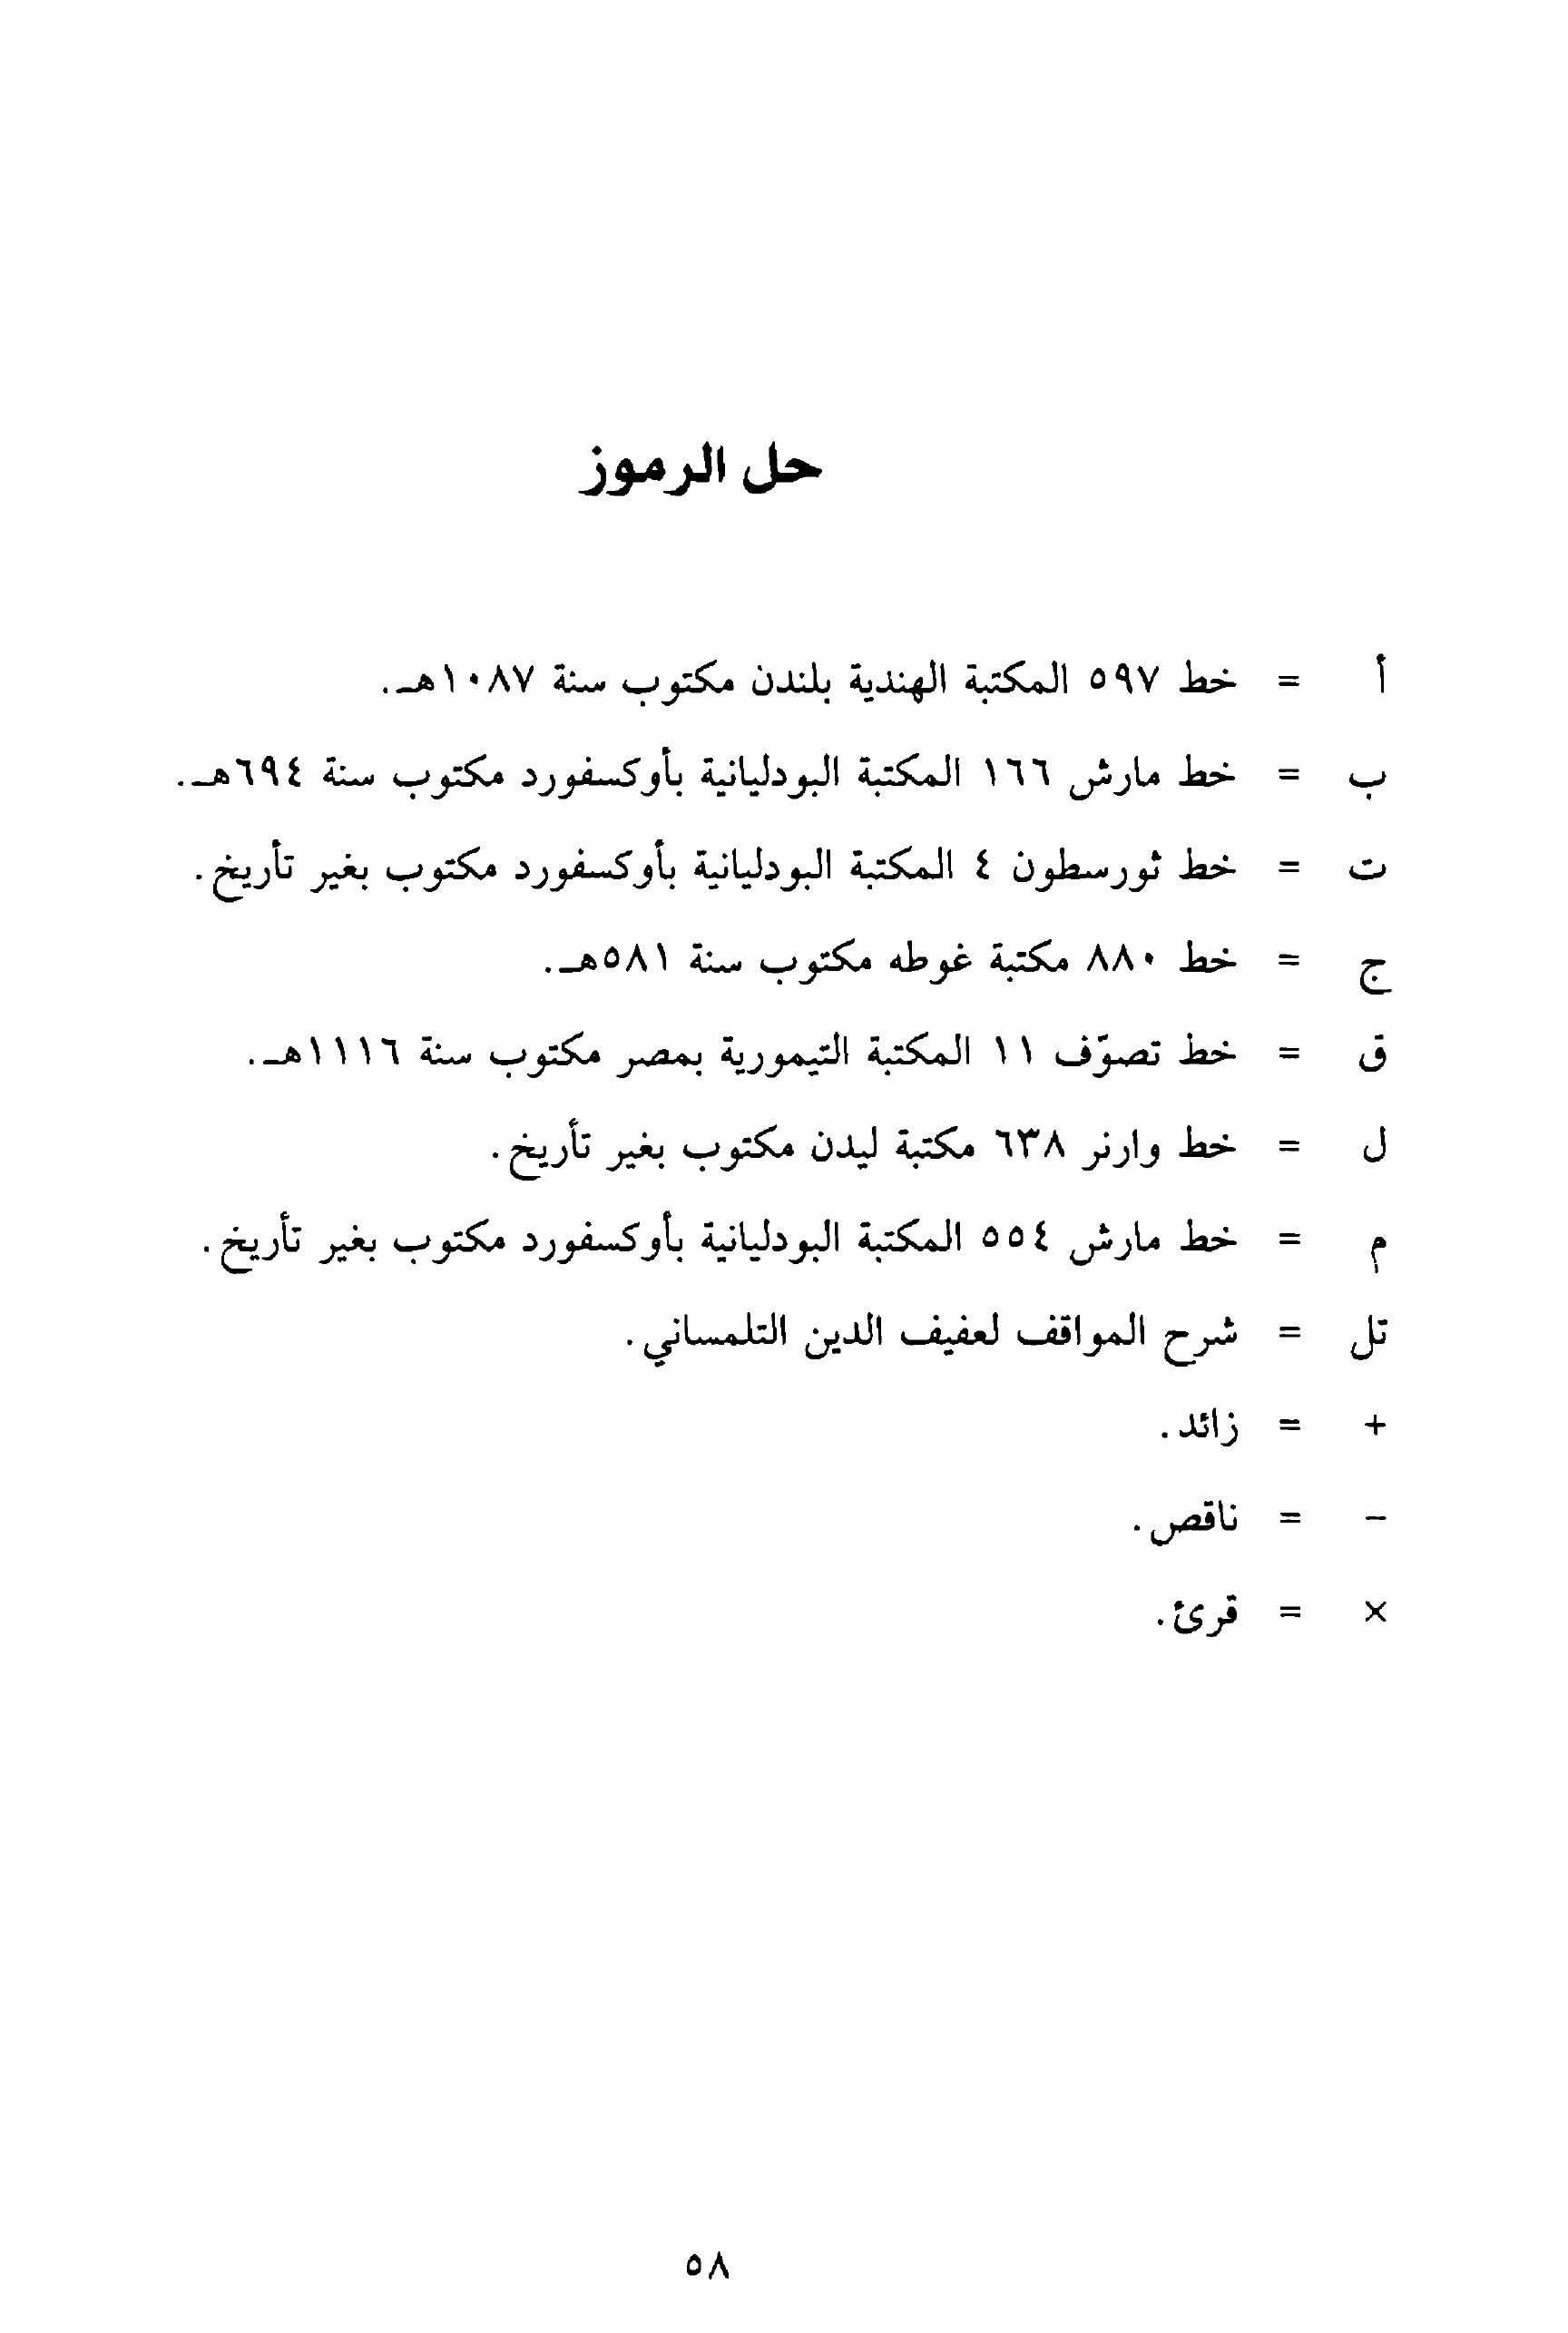 حل الرموز
أ = خط ٥٩٧ المكتبة الهندية بلندن مكتوب سنة ١٠٨٧هـ.
ب = خط مارش ١٦٦ المكتبة البودليانية بأوكسفورد مكتوب سنة ٦٩٤هـ.
ت = خط ثورسطون ٤ المكتبة البودليانية بأوكسفورد مكتوب بغير تأريخ.
ج = خط ٨٨٠ مكتبة غوطه مكتوب سنة ٥٨١هـ.
ق = خط تصوّف ١١ المكتبة التيمورية بمصر مكتوب سنة ١١١٦هـ.
ل = خط وارنر ٦٣٨ مكتبة ليدن مكتوب بغير تأريخ.
م = خط مارش ٥٥٤ المكتبة البودليانية بأوكسفورد مكتوب بغير تأريخ.
تل = شرح المواقف لعفيف الدين التلمساني.
+ = زائد.
- = ناقص.
× = قرئ.
٥٨